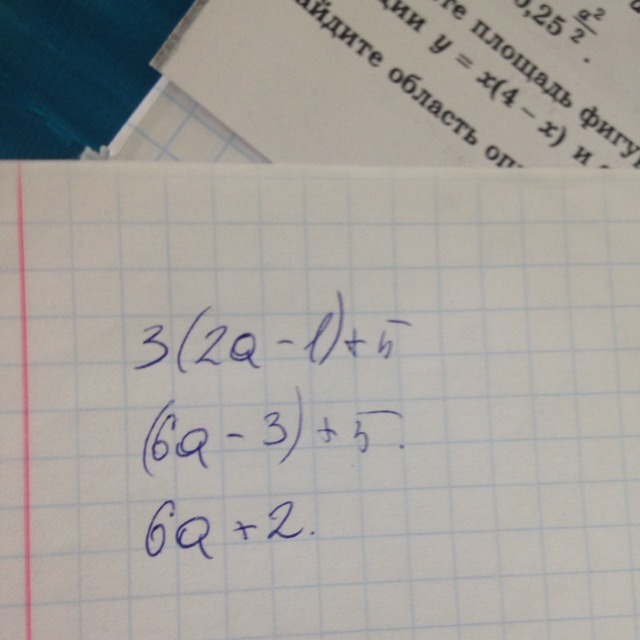 0,25
те площадь фигу
ции y = x(4 – x) и
айдите область оп
3(2a - 1) + 5
(6a - 3) + 5.
6a + 2.